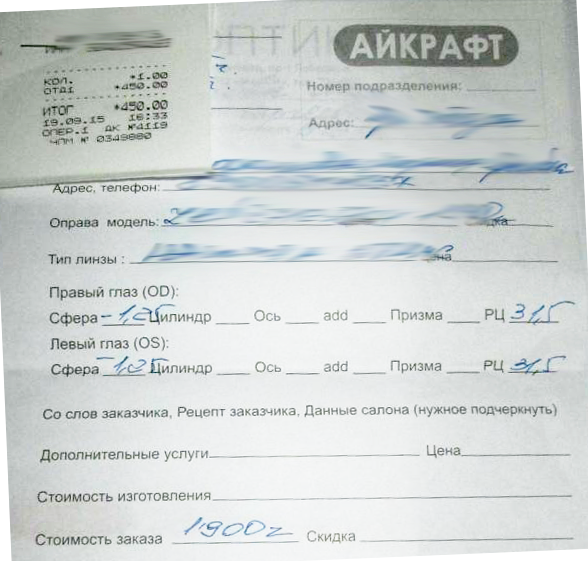 КОЛ. *1.00
ОТД1 *450.00
ИТОГ *450.00
19.09.15 16:33
ОПЕР.1 ДК №4119
ЧПМ № 0349880
АЙКРАФТ
Номер подразделения:
Адрес:
Адрес, телефон:
Оправа модель:
Тип линзы :
Правый глаз (OD):
Сфера -1,25 Цилиндр ____ Ось ____ add ____ Призма ____ РЦ 31,5
Левый глаз (OS):
Сфера -1,25 Цилиндр ____ Ось ____ add ____ Призма ____ РЦ 31,5
Со слов заказчика, Рецепт заказчика, Данные салона (нужное подчеркнуть)
Дополнительные услуги Цена
Стоимость изготовления
Стоимость заказа 1900 Скидка